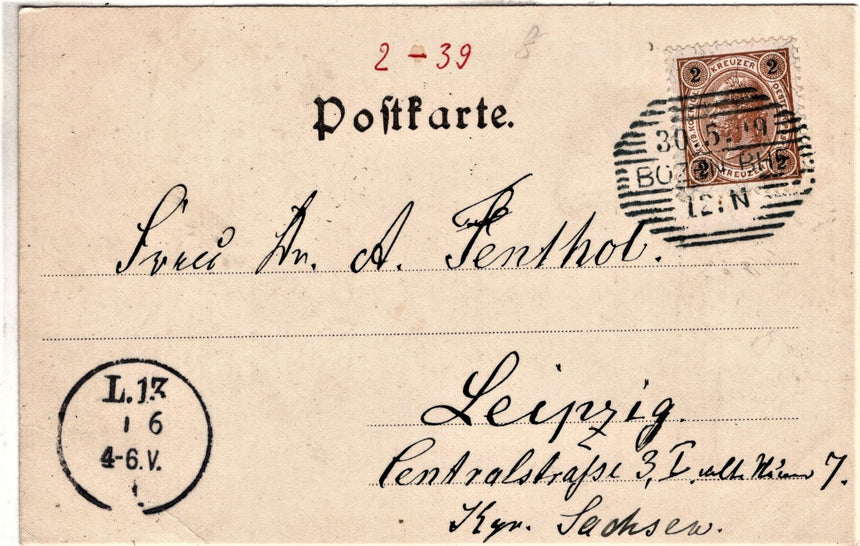 2 – 39
8
Postkarte.
2 KREUZER 2
2 KREUZER 2
30 5. 19
BOZEN BHF
12. N
Frau Dr. A. Fenthol.
L. 13
1 6
4-6.V.
1
Leipzig.
Centralstraße 3, I. 7.
Kgr. Sachsen.